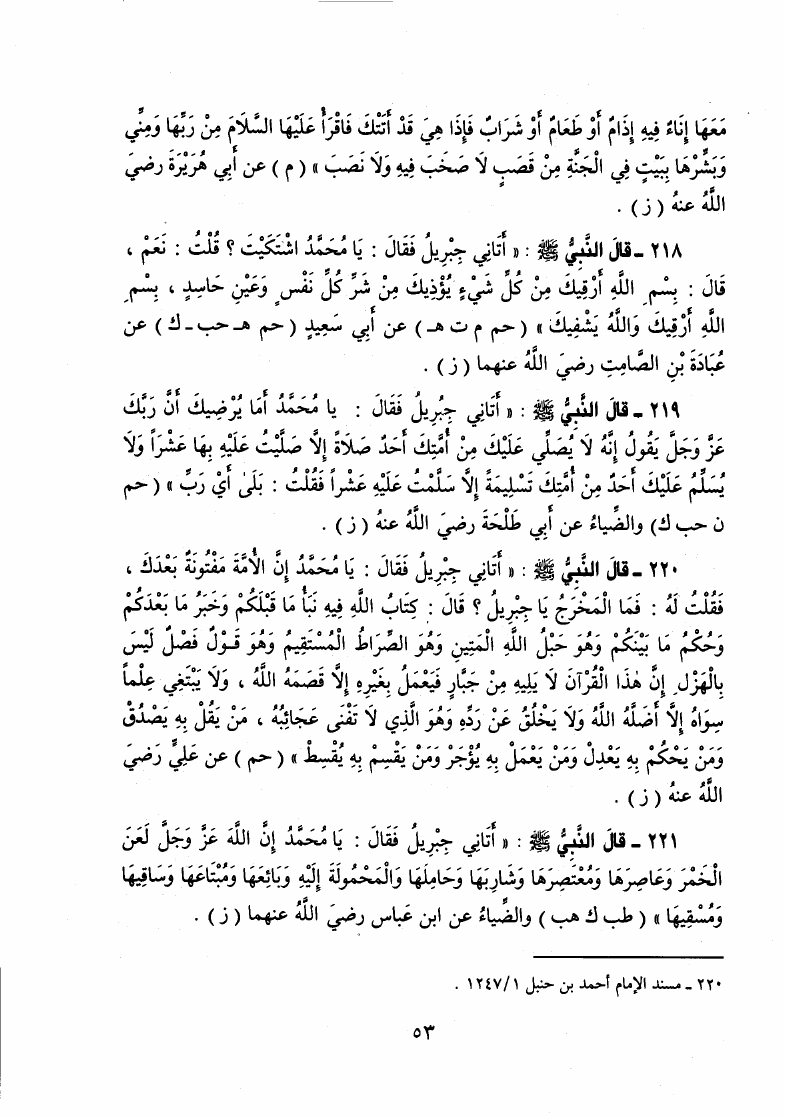 مَعَهَا إِنَاءٌ فِيهِ إِدَامٌ أَوْ طَعَامٌ أَوْ شَرَابٌ فَإِذَا هِيَ قَدْ أَتَتْكَ فَاقْرَأْ عَلَيْهَا السَّلَامَ مِنْ رَبِّهَا وَمِنِّي
وَبَشِّرْهَا بِبَيْتٍ فِي الْجَنَّةِ مِنْ قَصَبٍ لَا صَخَبَ فِيهِ وَلَا نَصَبَ » ( م ) عن أَبِي هُرَيْرَةَ رضيَ
اللَّهُ عنهُ ( ز ) .
٢١٨ - قالَ النَّبِيُّ ﷺ : « أَتَانِي جِبْرِيلُ فَقَالَ : يَا مُحَمَّدُ اشْتَكَيْتَ ؟ قُلْتُ : نَعَمْ ،
قَالَ : بِسْمِ اللَّهِ أَرْقِيكَ مِنْ كُلِّ شَيْءٍ يُؤْذِيكَ مِنْ شَرِّ كُلِّ نَفْسٍ وَعَيْنِ حَاسِدٍ ، بِسْمِ
اللَّهِ أَرْقِيكَ وَاللَّهُ يَشْفِيكَ » ( حم م ت هـ ) عن أَبي سَعِيدٍ ( حم هـ حب - ك ) عن
عُبَادَةَ بْنِ الصَّامِتِ رضيَ اللَّهُ عنهما ( ز ) .
٢١٩ - قالَ النَّبِيُّ ﷺ : « أَتَانِي جِبْرِيلُ فَقَالَ : يا مُحَمَّدُ أَمَا يُرْضِيكَ أَنَّ رَبَّكَ
عَزَّ وَجَلَّ يَقُولُ إِنَّهُ لَا يُصَلِّي عَلَيْكَ مِنْ أُمَّتِكَ أَحَدٌ صَلَاةً إِلَّا صَلَّيْتُ عَلَيْهِ بِهَا عَشْراً وَلَا
يُسَلِّمُ عَلَيْكَ أَحَدٌ مِنْ أُمَّتِكَ تَسْلِيمَةً إِلَّا سَلَّمْتُ عَلَيْهِ عَشْراً فَقُلْتُ : بَلَىٰ أَيْ رَبِّ » ( حم
ن حب ك) والضِّياءُ عن أَبي طَلْحَةَ رضيَ اللَّهُ عنهُ ( ز ) .
٢٢٠ - قالَ النَّبِيُّ ﷺ : « أَتَانِي جِبْرِيلُ فَقَالَ : يَا مُحَمَّدُ إِنَّ الْأُمَّةَ مَفْتُونَةٌ بَعْدَكَ ،
فَقُلْتُ لَهُ : فَمَا الْمَخْرَجُ يَا جِبْرِيلُ ؟ قالَ : كِتَابُ اللَّهِ فِيهِ نَبَأُ مَا قَبْلَكُمْ وَخَبَرُ مَا بَعْدَكُمْ
وَحُكْمُ مَا بَيْنَكُمْ وَهُوَ حَبْلُ اللَّهِ الْمَتِينِ وَهُوَ الصِّرَاطُ الْمُسْتَقِيمُ وَهُوَ قَوْلٌ فَصْلٌ لَيْسَ
بِالْهَزْلِ إِنَّ هٰذَا الْقُرْآنَ لَا يَلِيهِ مِنْ جَبَّارٍ فَيَعْمَلُ بِغَيْرِهِ إِلَّا قَصَمَهُ اللَّهُ ، وَلَا يَبْتَغِي عِلْماً
سِوَاهُ إِلَّا أَضَلَّهُ اللَّهُ وَلَا يَخْلُقُ عَنْ رَدِّهِ وَهُوَ الَّذِي لَا تَفْنَى عَجَائِبُهُ ، مَنْ يَقُلْ بِهِ يَصْدُقْ
وَمَنْ يَحْكُمْ بِهِ يَعْدِلْ وَمَنْ يَعْمَلْ بِهِ يُؤْجَرْ وَمَنْ يَقْسِمْ بِهِ يُقْسِطْ » ( حم ) عن عَلِيٍّ رَضيَ
اللَّهُ عنهُ ( ز ) .
٢٢١ - قالَ النَّبِيُّ ﷺ : « أَتَانِي جِبْرِيلُ فَقَالَ : يَا مُحَمَّدُ إِنَّ اللَّهَ عَزَّ وَجَلَّ لَعَنَ
الْخَمْرَ وَعَاصِرَهَا وَمُعْتَصِرَهَا وَشَارِبَهَا وَحَامِلَهَا وَالْمَحْمُولَةَ إِلَيْهِ وَبَائِعَهَا وَمُبْتَاعَهَا وَسَاقِيهَا
وَمُسْقِيهَا » ( طب ك هب ) والضِّياءُ عن ابنِ عَباسٍ رضيَ اللَّهُ عنهما ( ز ) .
٢٢٠ - مسند الإمام أحمد بن حنبل ١/١٢٤٧ .
٥٣